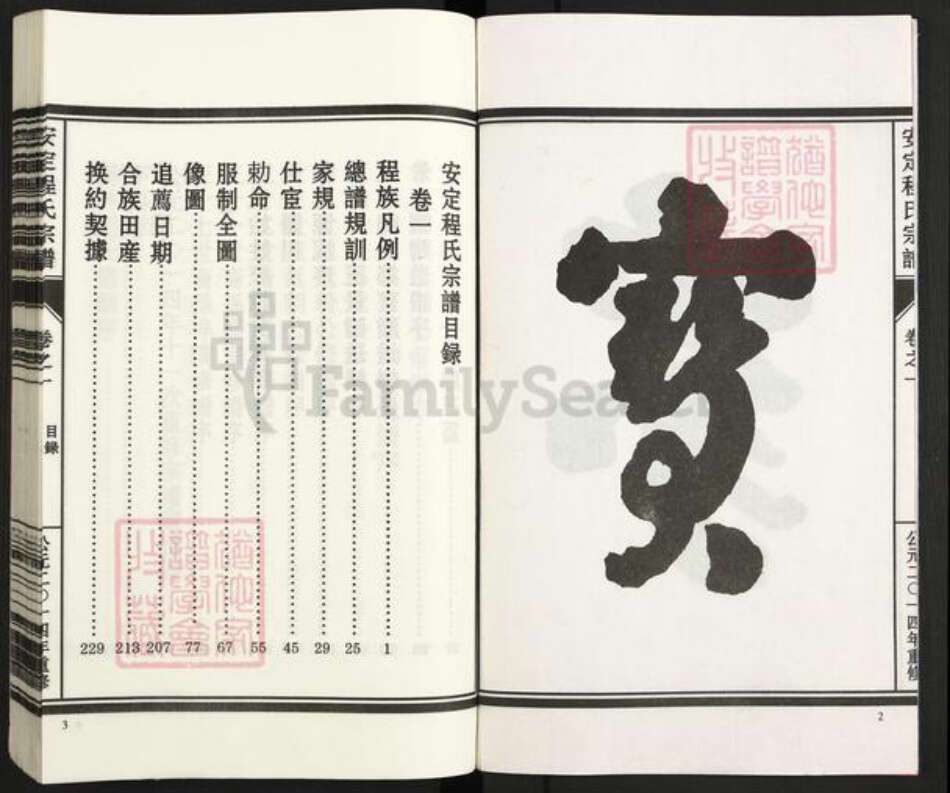 安定程氏宗譜
卷之一
公元二〇一四年重修
寶
2
安定程氏宗譜目録
卷一
程族凡例 1
總譜規訓 25
家規 29
仕宦 45
勅命 55
服制全圖 67
像圖 77
追薦日期 207
合族田産 213
换約契據 229
安定程氏宗譜
卷之一
目録
公元二〇一四年重修
3
FamilySearch